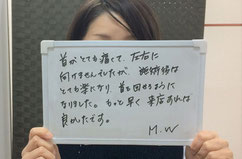 首がとても痛くて、左右に
向けませんでしたが、施術後は
とても楽になり、首も回るように
なりました。もっと早く来店すれば
良かったです。
M.W